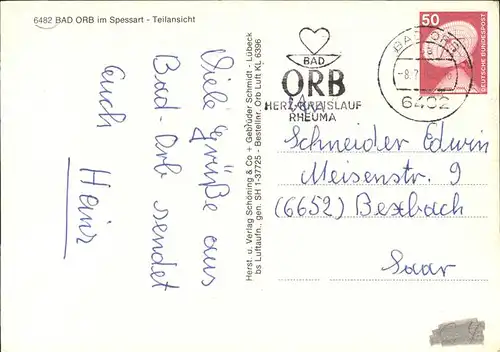 6482 BAD ORB im Spessart - Teilansicht
Viele Grüße aus
Bad-Orb sendet
euch
Heinz
Herst. u. Verlag Schöning & Co + Gebrüder Schmidt - Lübeck
bs Luftaufn., gen. SH 1-37725 - Bestellnr. Orb Luft KL 6396
BAD
ORB
HERZ-KREISLAUF
RHEUMA
BAD ORB
-8.7.
6482
50
DEUTSCHE BUNDESPOST
Schneider Edwin
Meisenstr. 9
(6652) Bexbach
Saar